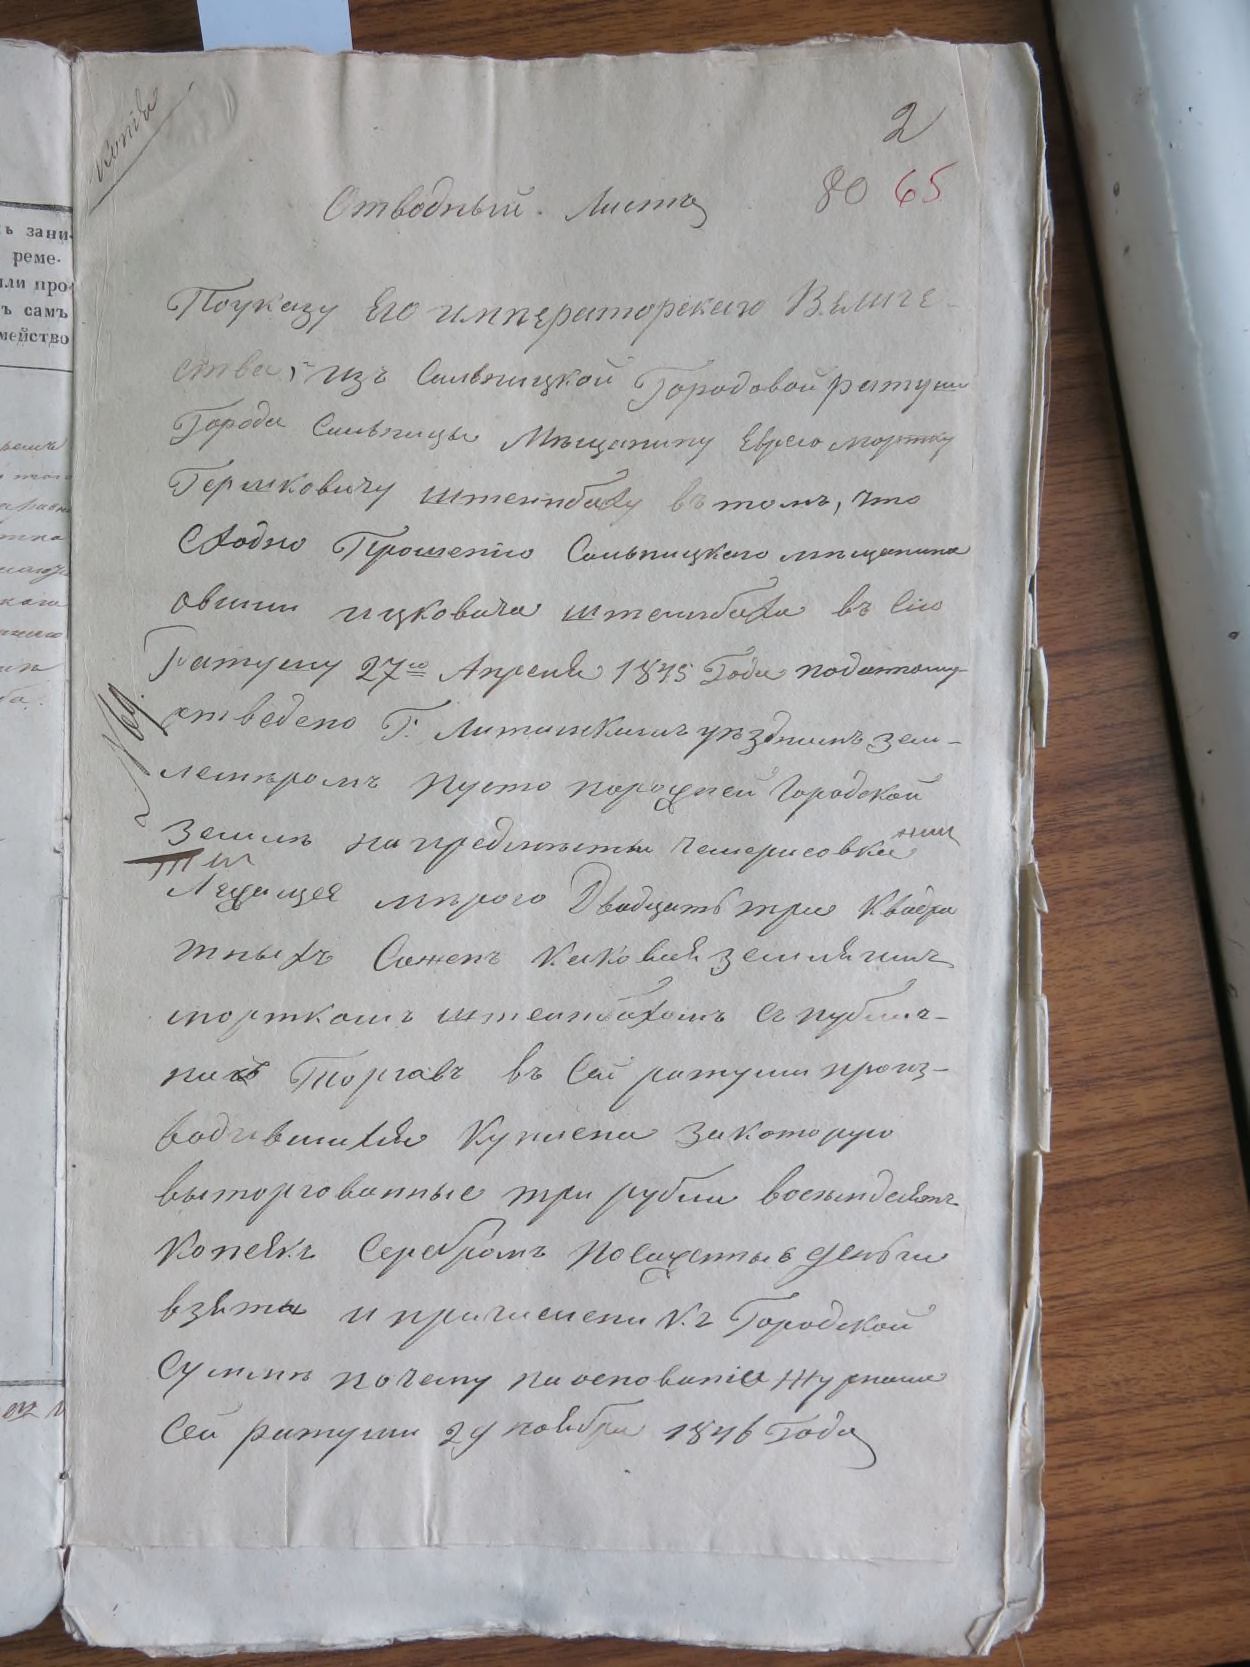 Копія
2
80 65
Отводный Листъ
По указу Его императорскаго Величе-
ства, изъ Сальницкой Городовой ратуши
Города Сальницы Мѣщанину Еврею мортку
Гершковичу штеинбаху въ томъ, что
Сходно Прошенію Сальницкаго мѣщанина
овшии ицковича штеинбаха въ Сію
Ратушу 27го Апреля 1845 Года поданному
отведено Г. Литинскимъ уѣзднымъ зем-
лемѣромъ пусто порожней Городской
Земли на предмѣстьи Чемерисовки
лежащея мѣрою Двадцать три Квадра
тныхъ Сажень каковая земля имъ
морткомъ штеинбахомъ съ публич-
ныхъ Торговъ въ Сей ратуши произ-
водившихся Куплена За которую
выторгованные три рубли восемдесятъ
копѣикъ Серебромъ посаженные деньги
взяты и причислены къ Городской
Сумми почему на основаніи Журнала
Сей ратуши 29 ноября 1846 Года
ъ зани-
реме-
или про-
ъ самъ
мейство